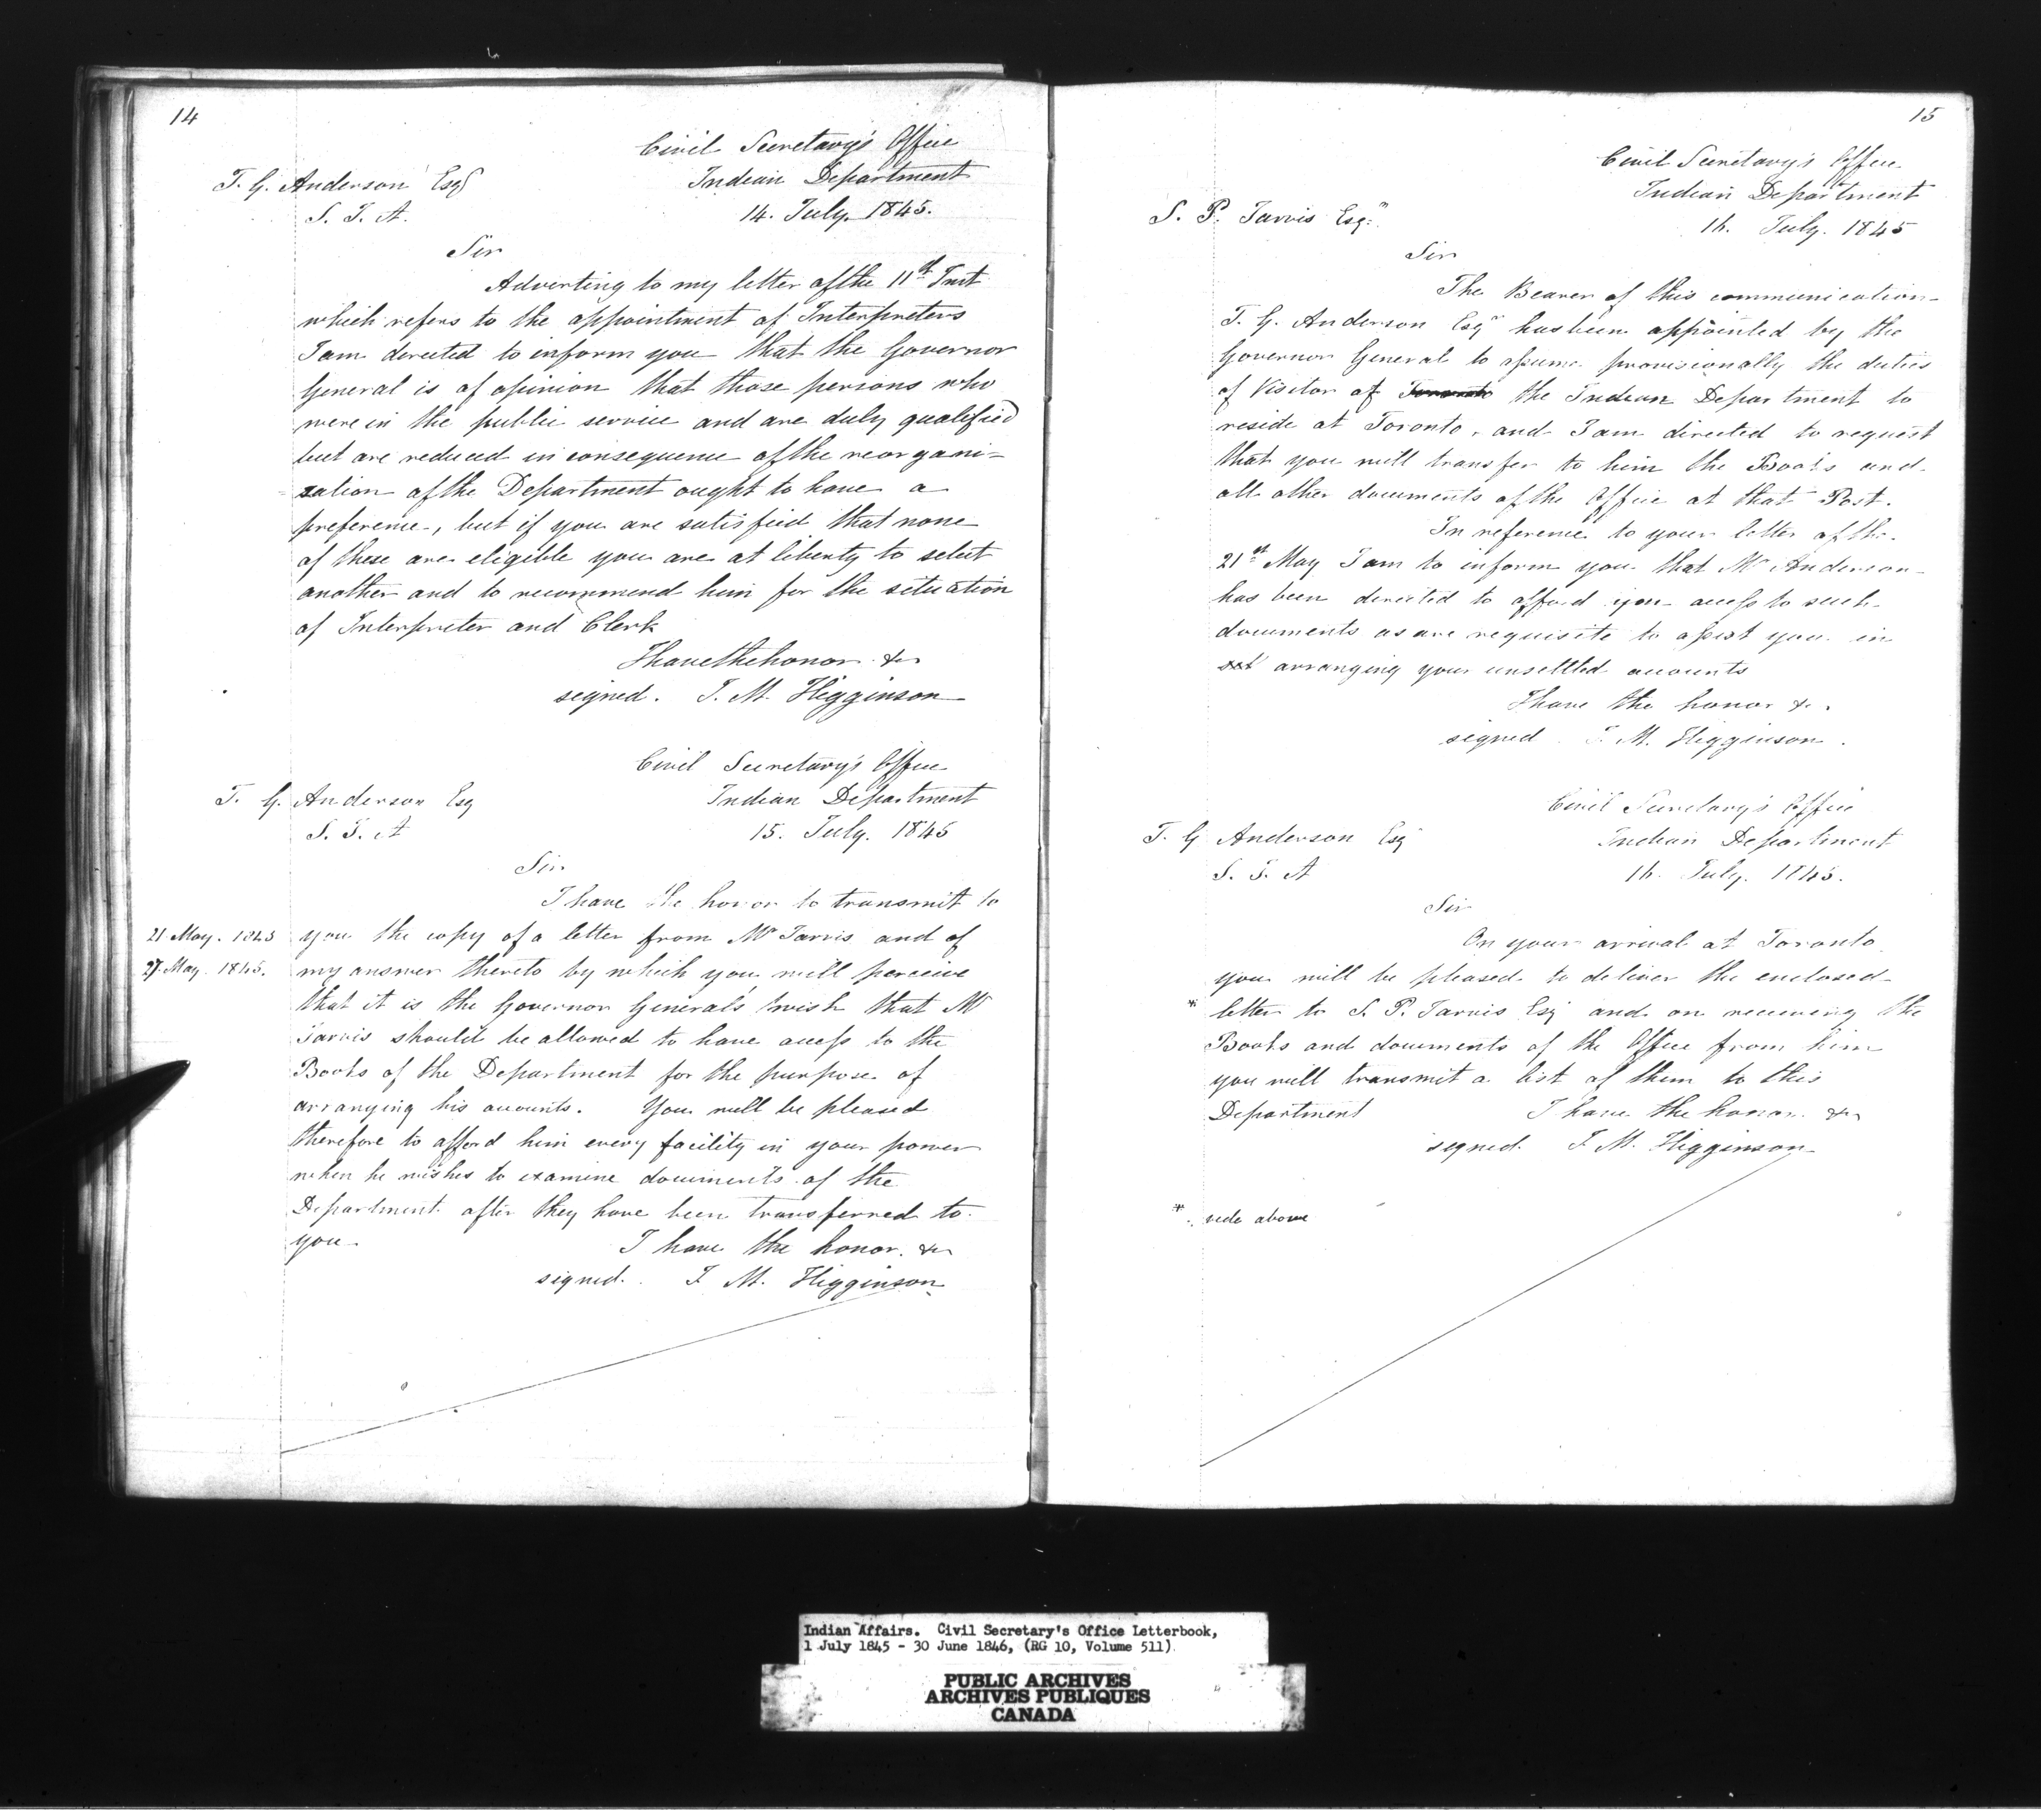 14
Civil Secretary's Office
Indian Department
14. July. 1845.
T. G. Anderson Esqr
S. I. A.
Sir
Adverting to my letter of the 11th Inst
which refers to the appointment of Interpreters
I am directed to inform you that the Governor
General is of opinion that those persons who
were in the public service and are duly qualified
but are reduced in consequence of the reorgani=
=zation of the Department ought to have a
preference, but if you are satisfied that none
of these are eligible you are at liberty to select
another and to recommend him for the situation
of Interpreter and Clerk
I have the honor &c
signed. J. M. Higginson
Civil Secretary's Office
Indian Department
15. July. 1845
T. G. Anderson Esq
S. I. A
Sir
I have the honor to transmit to
21 May. 1845 you the copy of a letter from Mr Jarvis and of
27 May. 1845. my answer thereto by which you will perceive
that it is the Governor General's wish that Mr
Jarvis should be allowed to have access to the
Books of the Department for the purpose of
arranging his accounts. You will be pleased
therefore to afford him every facility in your power
when he wishes to examine documents of the
Department after they have been transferred to
you
I have the honor. &c
signed. J. M. Higginson
15
Civil Secretary's Office
Indian Department
16. July. 1845
S. P. Jarvis Esqr
Sir
The Bearer of this communication
T. G. Anderson Esqr has been appointed by the
Governor General to assume provisionally the duties
of Visitor of Toronto the Indian Department to
reside at Toronto, and I am directed to request
that you will transfer to him the Books and
all other documents of the Office at that Post.
In reference to your letter of the
21st May I am to inform you that Mr Anderson
has been directed to afford you access to such
documents as are requisite to assist you in
set arranging your unsettled accounts
I have the honor &c.
signed. J. M. Higginson.
Civil Secretary's Office
Indian Department
16. July. 1845.
T. G Anderson Esq
S. I. A
Sir
On your arrival at Toronto
you will be pleased to deliver the enclosed
* letter to S. P. Jarvis Esq and on receiving the
Books and documents of the Office from him
you will transmit a list of them to this
Department I have the honor. &c
signed. J. M. Higginson
* vide above
Indian Affairs. Civil Secretary's Office Letterbook,
1 July 1845 - 30 June 1846, (RG 10, Volume 511)
PUBLIC ARCHIVES
ARCHIVES PUBLIQUES
CANADA